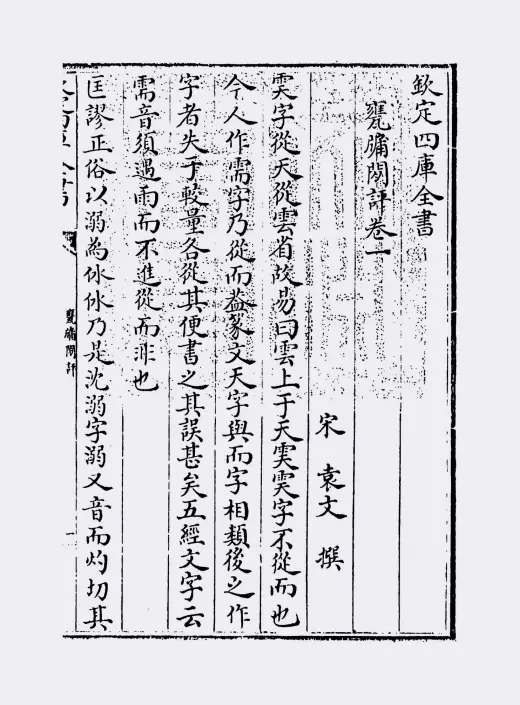 欽定四庫全書
甕牖閒評卷一
宋 袁文 撰
霒字從天從雲省故易曰雲上于天霒霒字不從而也
今人作需字乃從而葢篆文天字與而字相類後之作
字者失于較量各從其便書之其誤甚矣五經文字云
需音須遇雨而不進從而非也
匡謬正俗以溺為㲻㲻乃是沈溺字溺又音而灼切其
甕牖閒評
一